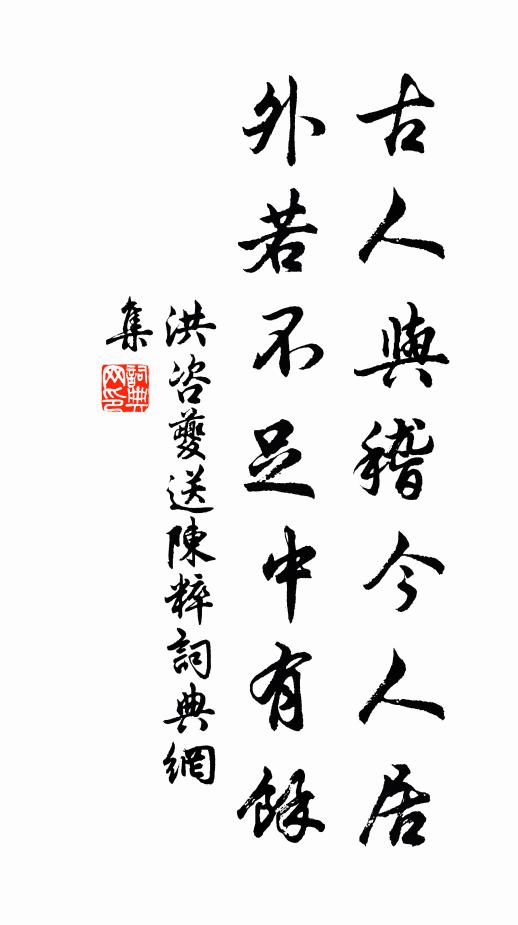 古人與稽今人居
外若不足中有餘
洪咨夔送陳粹詞典網
集
詞典
网印